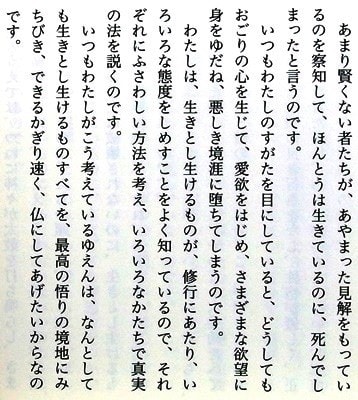 あまり賢くない者たちが、あやまった見解をもってい
るのを察知して、ほんとうは生きているのに、死んでし
まったと言うのです。
いつもわたしのすがたを目にしていると、どうしても
おごりの心を生じて、愛欲をはじめ、さまざまな欲望に
身をゆだね、悪しき境涯に堕ちてしまうのです。
わたしは、生きとし生けるものが、修行にあたり、い
ろいろな態度をしめすことをよく知っているので、それ
ぞれにふさわしい方法を考え、いろいろなかたちで真実
の法を説くのです。
いつもわたしがこう考えているゆえんは、なんとして
も生きとし生けるものすべてを、最高の悟りの境地にみ
ちびき、できるかぎり速く、仏にしてあげたいからなの
です。